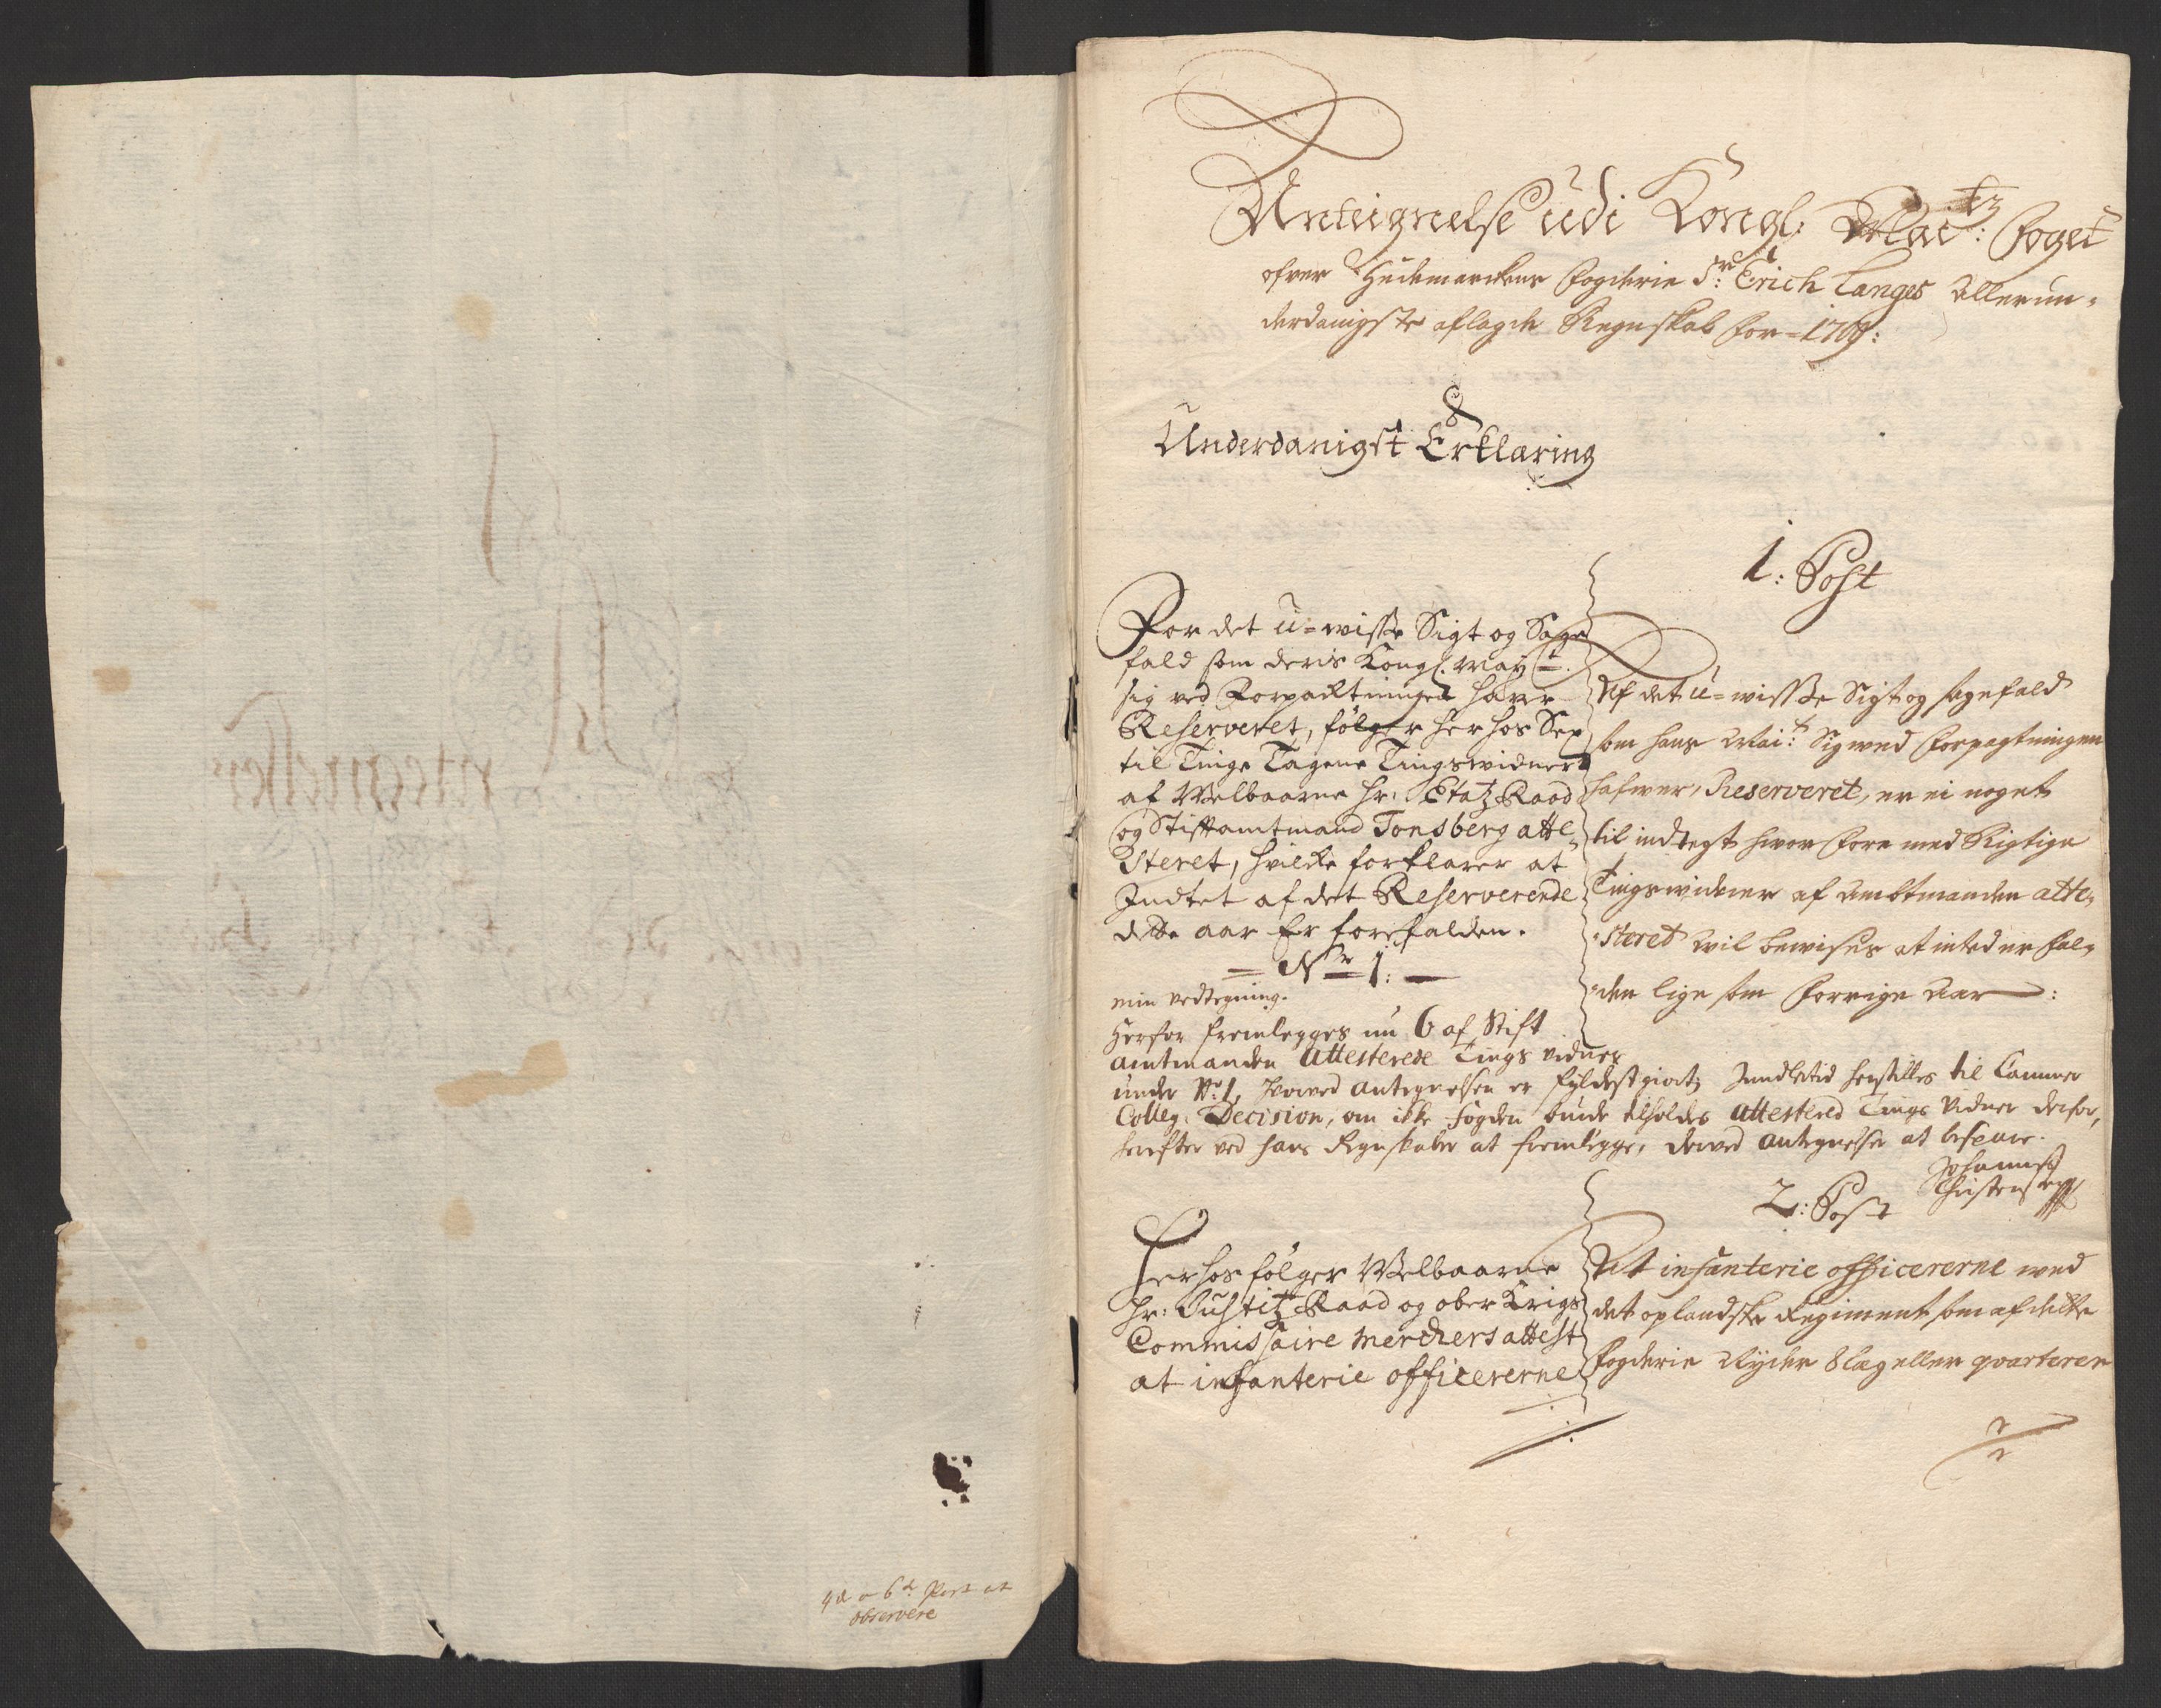 4de og 6te Post at
observere
Anteignelse udi Kongl: Mai:tz Foget
ofver Hedemarkens Fogderie Sr: Erich Langes Allerun-
derdanigste aflagde Regnskab for 1709:
&
Underdanigst Erklæring
1: Post
For det u-wisse Sigt og Sage
fald som deris Kongl. May:t
sig ved Forpacktningen hafr
Reserveret, følger her hos Sex
til Tinge Tagene Tingsvidner
af Welbaarne Hr: EtatzRaad
og Stiftamtmand Tonsberg atte-
steret, hvilke forklarer at
Indtet af det Reserverende
dette aar Er forefalden.
No 1:
Af det u-wisse Sigt og sagefald
som hans Mai:t Sig wed forpagtningen
hafwer, Reserveret, er ei noget
til indtegt hvor fore med Rigtige
Tingswidner af Ambtmanden atte-
steret wil bewises at inted er fal-
den lige som forrige Aar:
min vedtegning.
Herfor fremlegges nu 6 af Stift
amtmanden attesterede Tings vidner
under No: 1, hvorved antegnelsen er fyldest giort; Imidlertid henstilles til Cammer
Colleg: Decision, om ikke fogden burde tilholdes attestered Tings vidner derfor,
herefter ved hans Regnskaber at fremlegge, derved antegnelse at bespare.
Johannes
Christensen
2: Post
Herhos følger Welbaarne
Hr: Justitz Raad og ober Krigs
Commissaire Merckers attest
at infanterie officererne
At infanterie officererne wed
det oplandske Regiment som af dette
fogderie Nyder 8 læg eller qvarterer